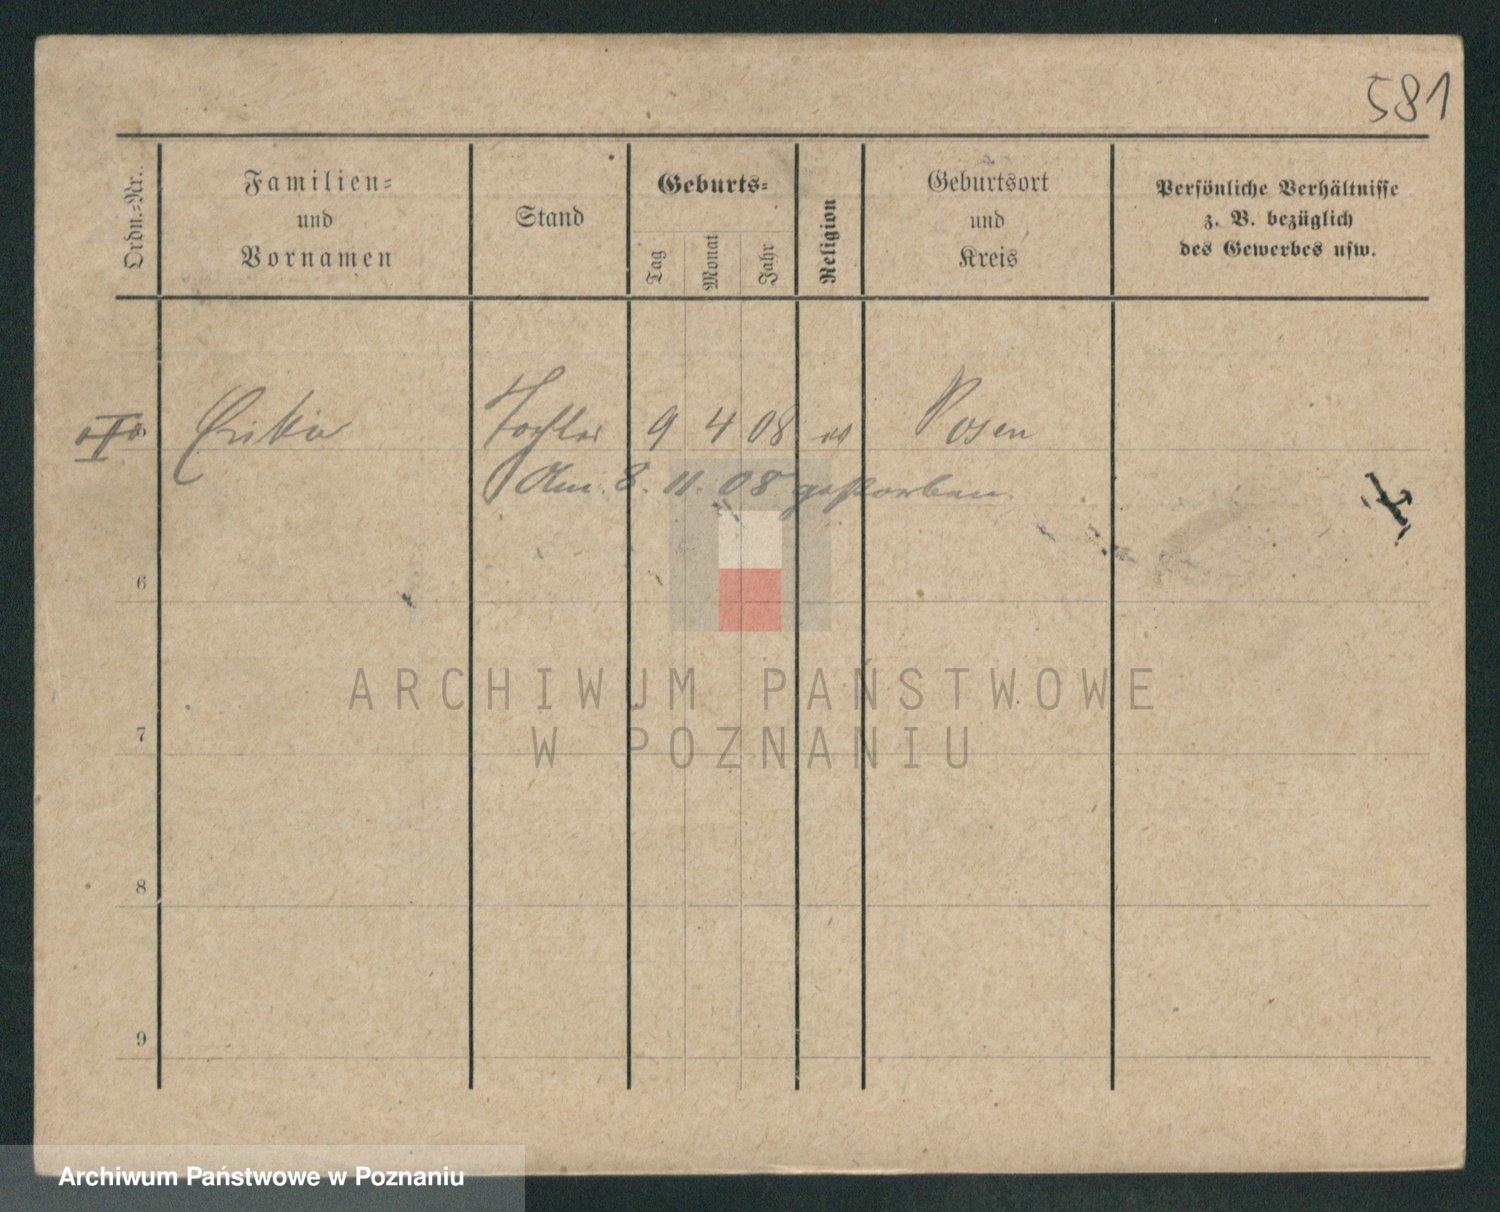 581
Ordn.-Nr.
Familien-
und
Vornamen
Stand
Geburts-
Tag
Monat
Jahr
Religion
Geburtsort
und
Kreis
Persönliche Verhältnisse
z. B. bezüglich
des Gewerbes usw.
Erika Tochter 9 4 08 Posen
Am 8. 11. 08 gestorben
6
ARCHIWUM PAŃSTWOWE
7
W POZNANIU
8
9
Archiwum Państwowe w Poznaniu